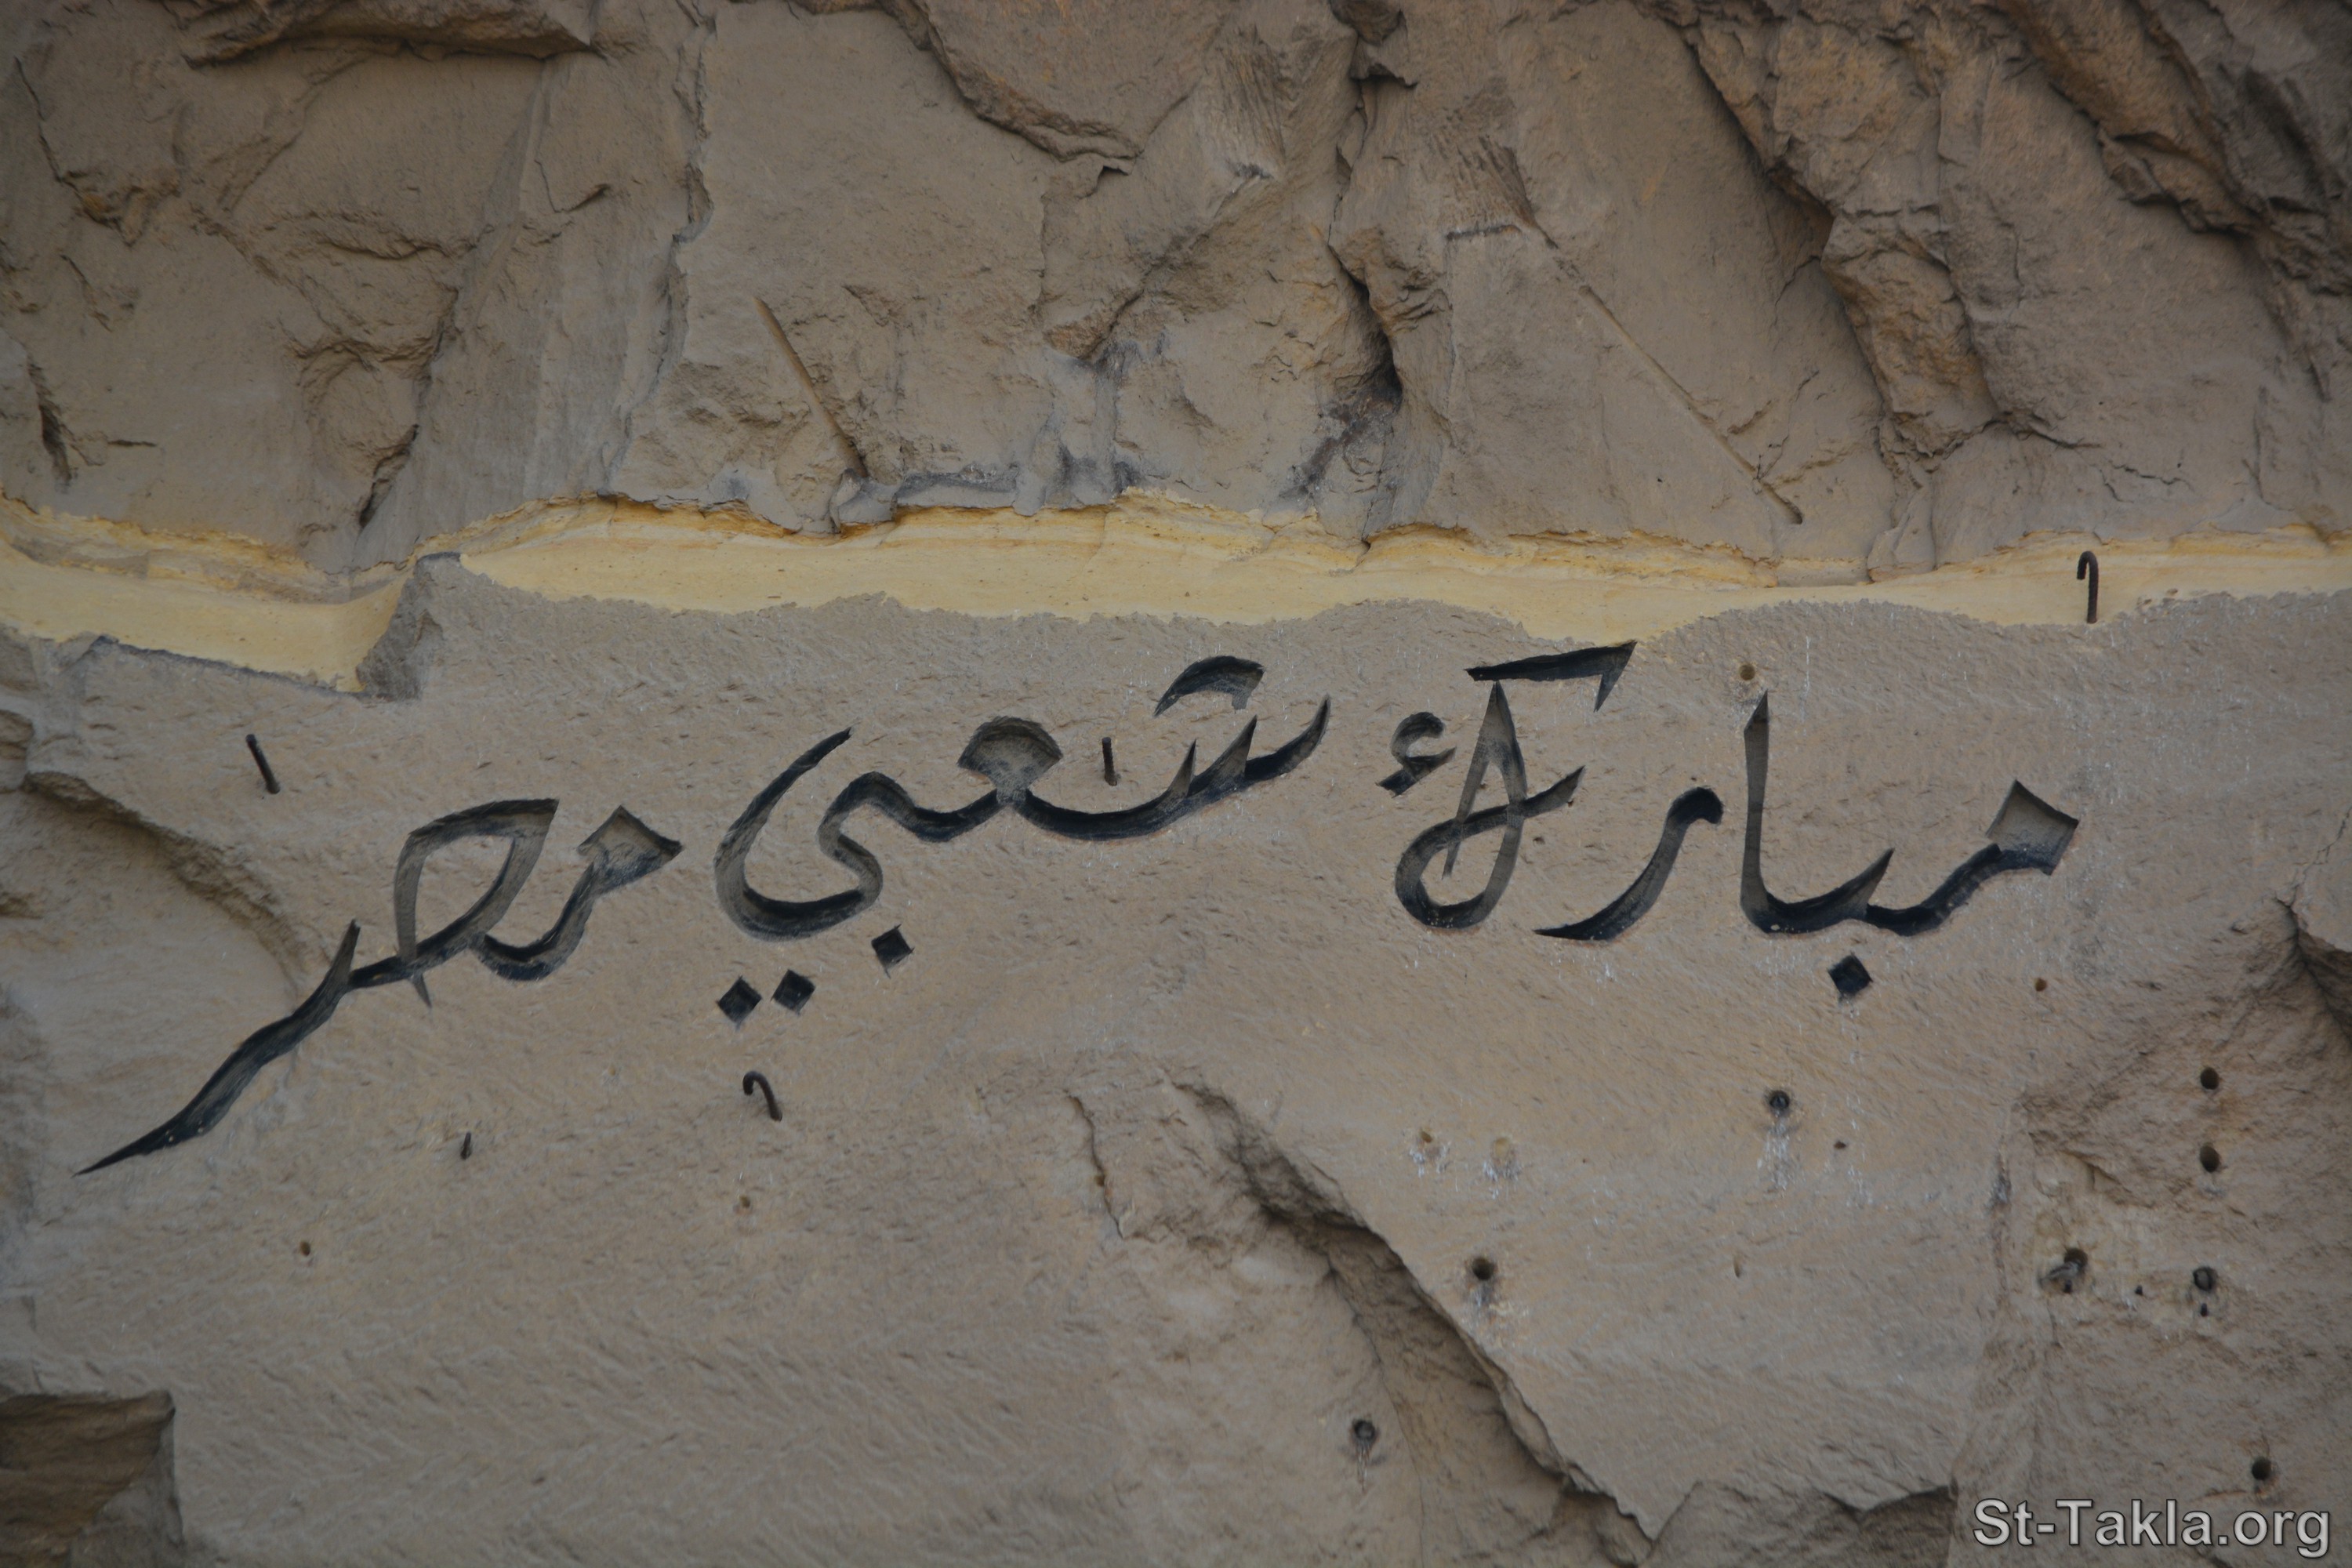 مبارك شعبي مصر
St-Takla.org